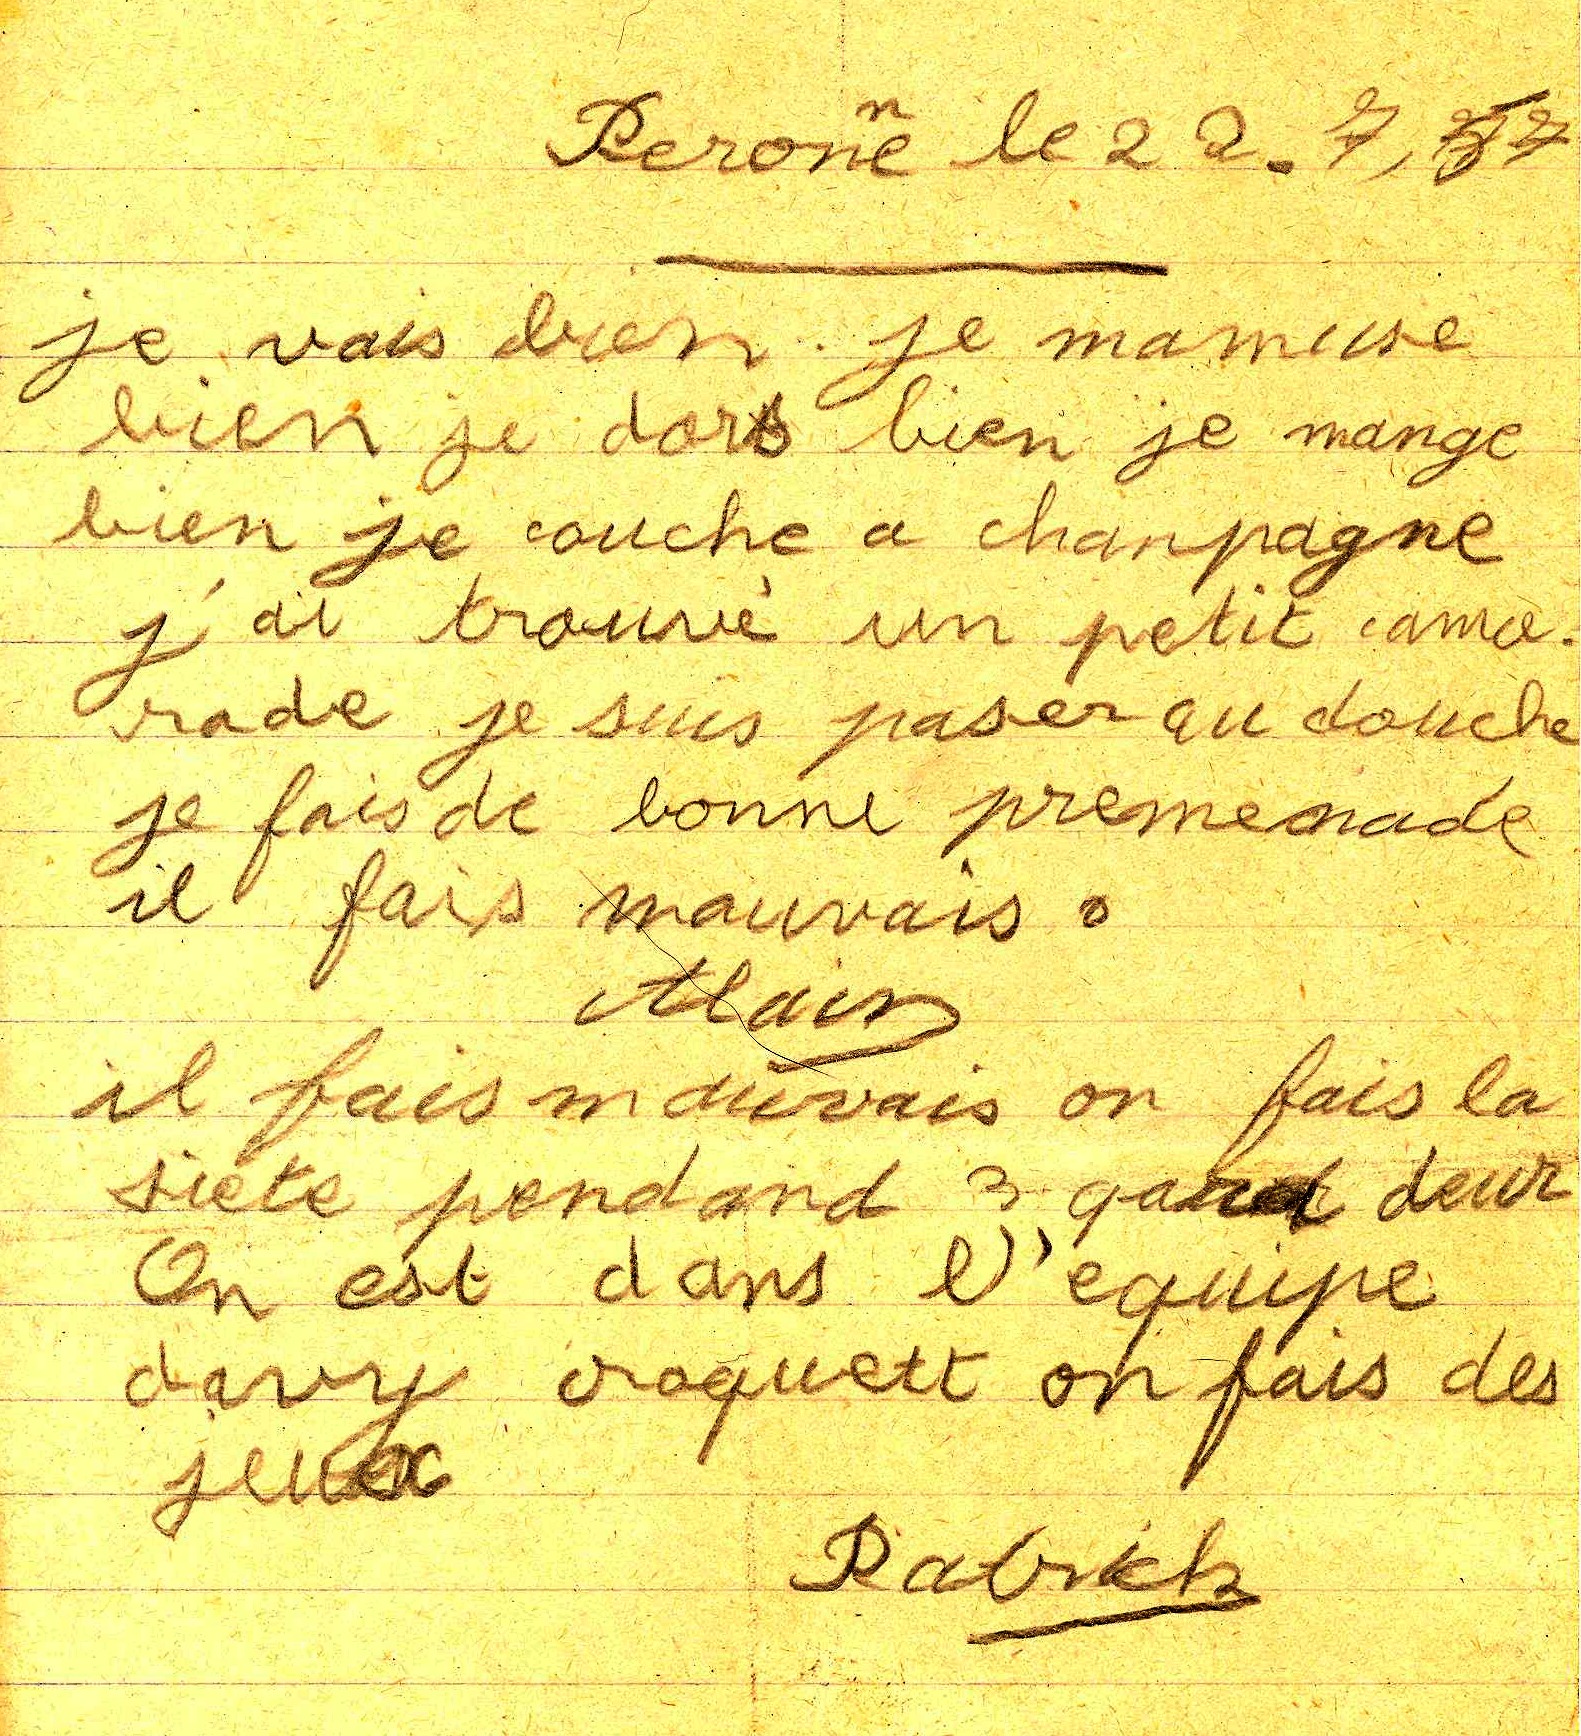 Peronne le 22.7,57
je vais bien. je mamuse
bien je dors bien je mange
bien je couche a chanpagne
j'ai trouvé un petit cama-
rade je suis paser au douche
je fais de bonne premenade
il fais mauvais.
Alain
il fais mauvais on fais la
siete pendand 3 quard deur
On est dans l'equipe
davy croquett on fais des
jeux
Patrick